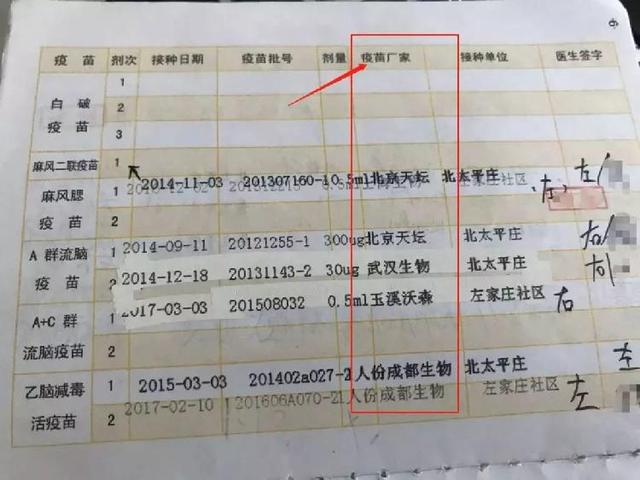 疫苗 剂次 接种日期 疫苗批号 剂量 疫苗厂家 接种单位 医生签字
白破疫苗 1
2
3
麻风二联疫苗 1 2014-11-03 201307160-1 0.5ml 北京天坛 北太平庄 左
麻风腮疫苗 1 左家庄社区 左
2
A群流脑疫苗 1 2014-09-11 20121255-1 300ug 北京天坛 北太平庄 右
2 2014-12-18 20131143-2 30ug 武汉生物 北太平庄 右
A+C群流脑疫苗 1 2017-03-03 201508032 0.5ml 玉溪沃森 左家庄社区 右
2
乙脑减毒活疫苗 1 2015-03-03 201402a027-2 1人份 成都生物 北太平庄 左
2 2017-02-10 201606A070-2 1人份 成都生物 左家庄社区 左